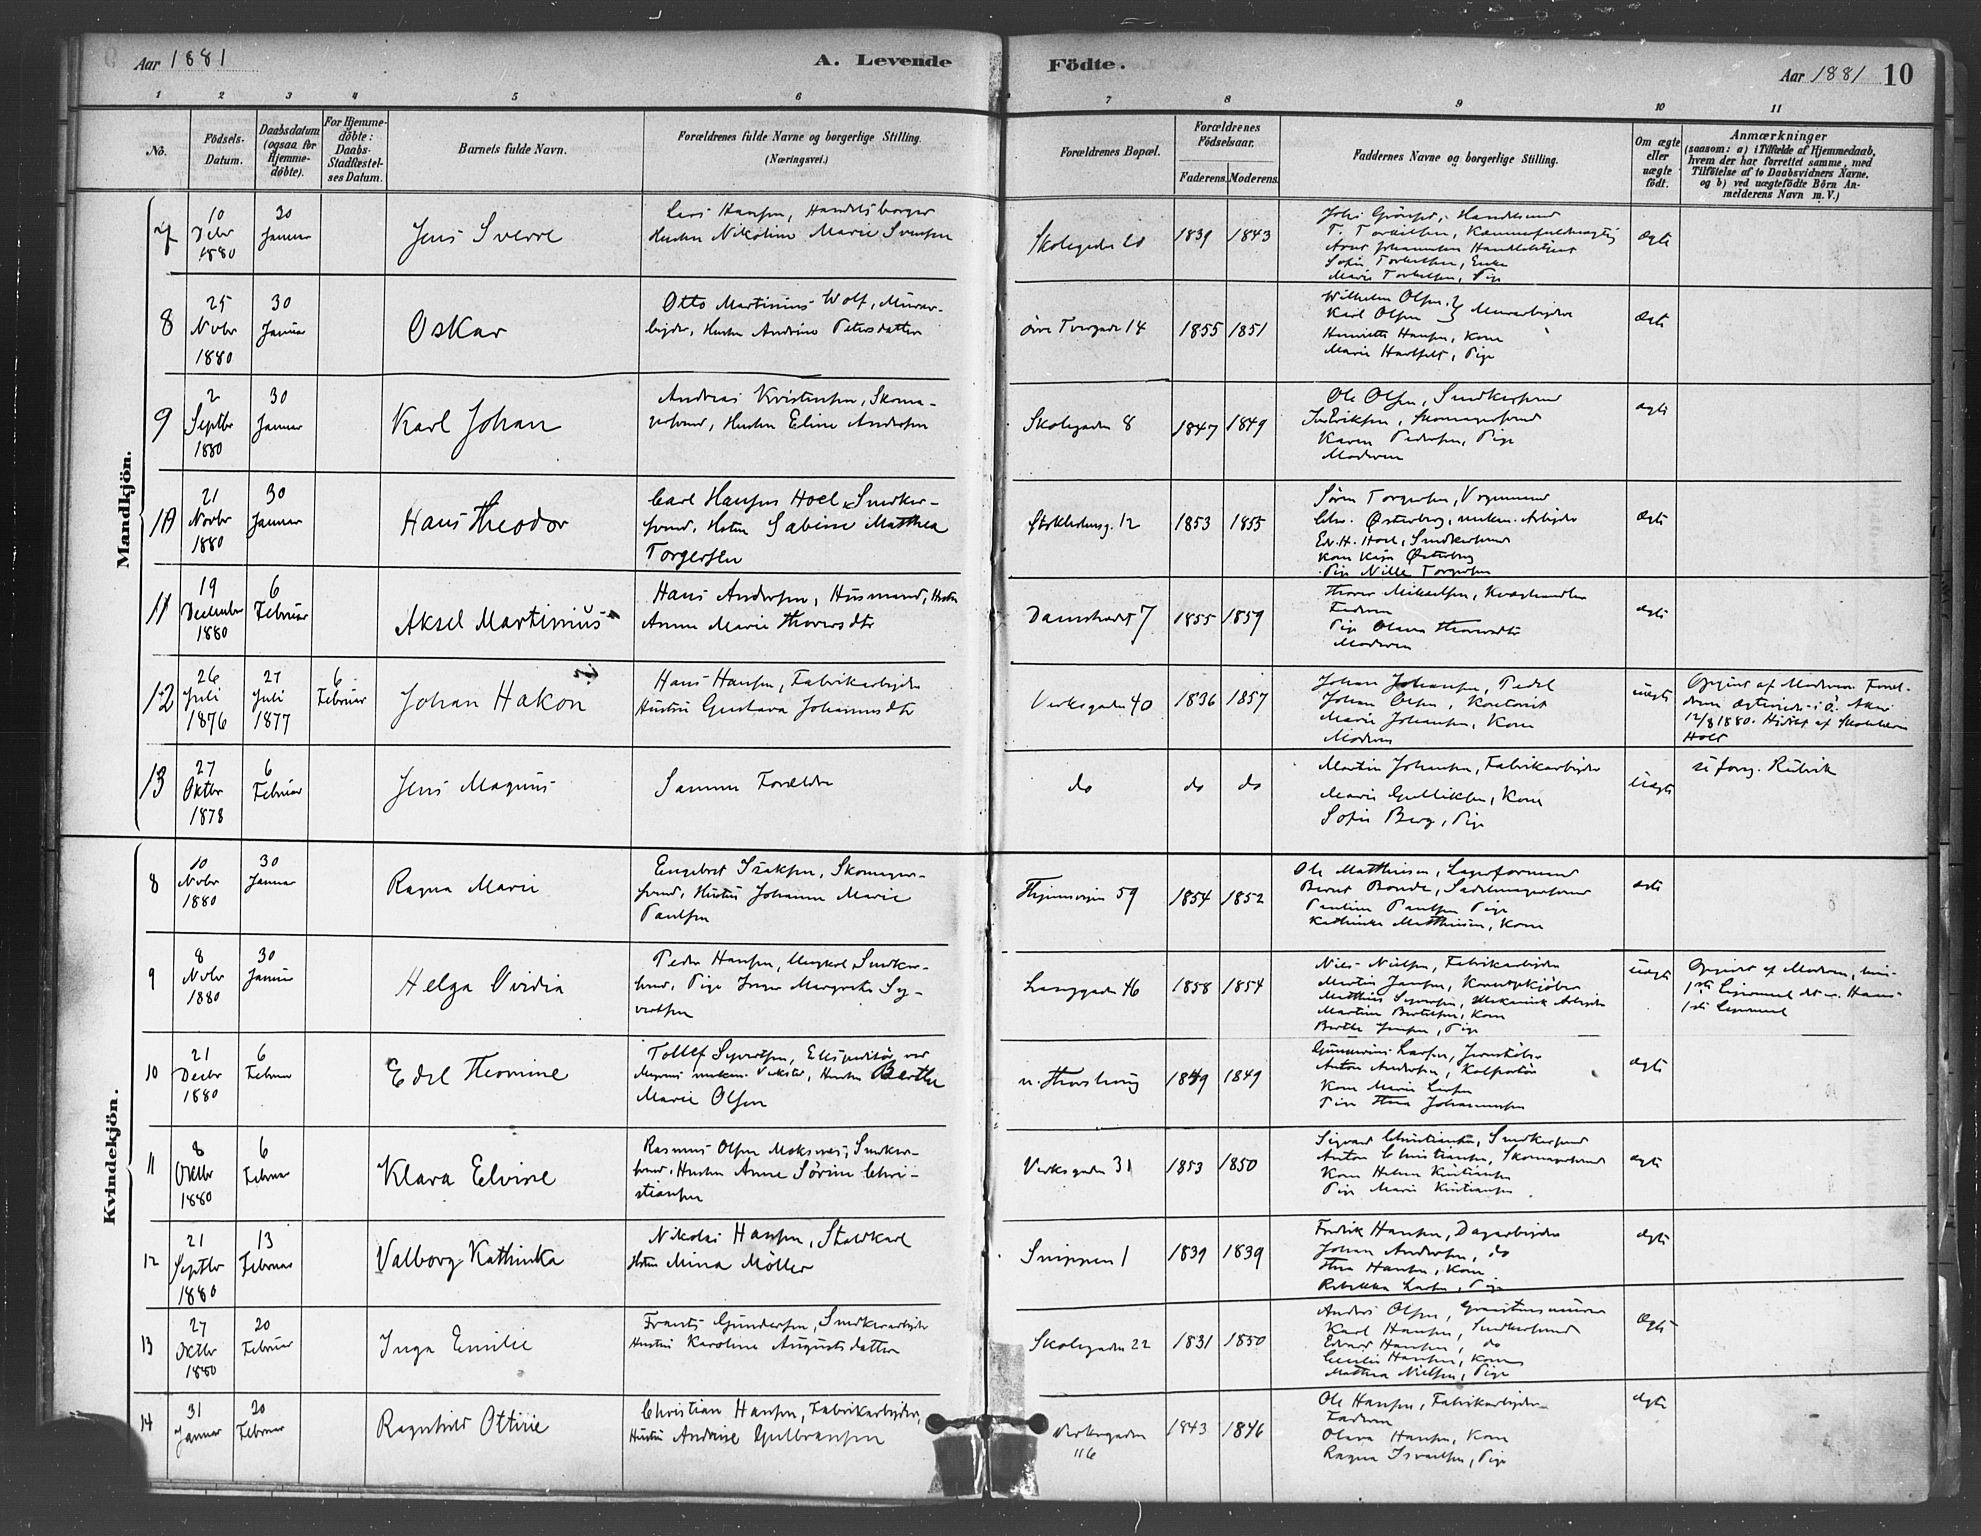 Aar 1881
A. Levende
Födte.
Aar 1881 10
1 2 3 4 5 6 7 8 9 10 11
No.
Födsels-Datum.
Daabsdatum (ogsaa for Hjemme-döbte).
For Hjemme-döbte: Daabs-Stadfæstel-ses Datum.
Barnets fulde Navn.
Forældrenes fulde Navne og borgerlige Stilling.
(Næringsvei.)
Forældrenes Bopæl.
Forældrenes Födselsaar.
Faderens. Moderens.
Faddernes Navne og borgerlige Stilling.
Om ægte eller uægte födt.
Anmærkninger
(saasom: a) i Tilfælde af Hjemmedaab,
hvem der har forrettet samme, med
Tilföielse af to Daabsvidners Navne.
og b) ved uægtefödte Börn An-
melderens Navn m. V.)
Mandkjön.
7
10 Debr 1880
30 Januar
Jens Sverre
Lars Hansen, Handelsborger
Hustru Nikoline Marie Svensen
Skolegaden 20
1839 1843
T. Torkilsen,
Arnt Johannesen
Sofie Torkelsen, Enke
Marie Torkelsen, Pige
ægte
8
25 Novbr 1880
30 Januar
Oskar
Otto Martinius Wolf, Murar-
beider, Hustru Andrine Petersdatter
övre Tvergade 14
1855 1851
Wilhelm Olsen
Karl Olsen } Murarbeider
Henriette Hansen, Kone
Marie Hartfelt, Pige
Ægte
9
2 Septbr 1880
30 Januar
Karl Johan
Andreas Kristensen, Skoma-
gersvend, Hustru Eline Andersen
Skolegaden 8
1847 1849
Ole Olsen, Snedkersvend
Eriksen, Skomagersvend
Karen Pedersen, Pige
Moderen
ægte
10
21 Novbr 1880
30 Januar
Hans Theodor
Carl Hansen Hoel, Snedker-
svend, Hustru Sabine Mathea
Torgersen
12
1853 1855
Sören Torgersen, Vognmand
Chr. Österberg, mekan. Arbeider
Edv. H. Hoel, Snedkersvend
Kone Kaja Österberg
Pige Nille Torgersen
Ægte
11
19 December 1880
6 Februar
Aksel Martinius
Hans Andersen, Husmand, Hustru
Anne Marie Thoresdtr
Damstredet 7
1855 1859
Thorer Mikaelsen, Kvæghandler
Faderen
Pige Olava Thoresdtr
Moderen
ægte
12
26 Juli 1876
27 Juli 1877
6 Februar
Johan Hakon
Hans Hansen, Fabrikarbeider
Hustru Gustava Johannesdtr
Verksgaden 40
1836 1857
Johan Johansen, Pedel
Johan Olsen, Kontorist
Marie Johansen, Kone
Moderen
uægte
Opgivet af Moderen. Foræl-
drene ægteviede i Ö. Aker
12/8 1880.
Holt
13
27 Oktbr 1878
6 Februar
Jens Magnus
Samme Forældre
do do do
Martin Johansen, Fabrikarbeider
Marie Gulliksen, Kone
Sofie Berg, Pige
Uægte
se forrg. Rubrik
Kvindekjön.
8
10 Novbr 1880
30 Januar
Ragna Marie
Engebret Isaksen, Skomager-
svend, Hustru Johanne Marie
Paulsen
59
1854 1852
Ole Mathiesen, Lagerformand
Bernt Bonde, Sadelmagersvend
Pauline Paulsen Pige
Kathinka Mathiesen, Kone
ægte
9
8 Novbr 1880
30 Januar
Helga Ovidia
Peder Hansen, Ungkarl, Snedker-
svend, Pige Inger Margrethe Sy-
vertsen
Langgaden 46
1858 1854
Nils Nielsen, Fabrikarbeider
Martin Jansen,
Mathias Syvertsen, Mekanisk Arbeider
Martine Bertelsen, Kone
Berthe Jensen, Pige
uægte
Opgivet af Moderen,
1ste Leiermaal
1ste Leiermaal
10
21 Decbr 1880
6 Februar
Edel Thomine
Tollef Syvertsen, Expeditör ved
Myrens mekan. Verksted, Hustru Berthe
Marie Olsen
n. Thorshaug
1849 1849
Larsen,
Anton Andersen, Kolportör
Kone Marie Larsen
Pige Thea Johannesen
ægte
11
8 Oktbr 1880
6 Februar
Klara Elvine
Rasmus Olsen Moksnes, Snedker-
svend, Hustru Anne Sörine Chri-
stiansen
Verksgaden 31
1853 1850
Sigvard Christiansen, Snedkersvend
Anton Christiansen, Skomagersvend
Kone Helene Kristiansen
Pige Marie Kristiansen
ægte
12
21 Septbr 1880
13 Februar
Valborg Kathinka
Nikolai Hansen, Staldkarl
Hustru Mina Möller
Snippen 1
1839 1839
Fredrik Hansen, Dagarbeider
Johan Andersen, do
Thea Hansen, Kone
Rebekka Larsen, Pige
ægte
13
27 Oktbr 1880
20 Februar
Inga Emilie
Frants Gundersen, Snedkerarbeider
Hustru Karoline Augustsdatter
Skolegaden 22
1831 1850
Anders Olsen,
Karl Hansen, Snedkersvend
Edvard Hansen, do
Cecilie Hansen, Kone
Mathea Nielsen, Pige
Ægte
14
31 Januar
20 Februar
Ragnhild Ottine
Christian Hansen, Fabrikarbeider,
Hustru Andrine Gulbransen
116
1843 1846
Ole Hansen, Fabrikarbeider
Faderen
Olava Hansen, Kone
Ragna Israelsen, Pige
ægte